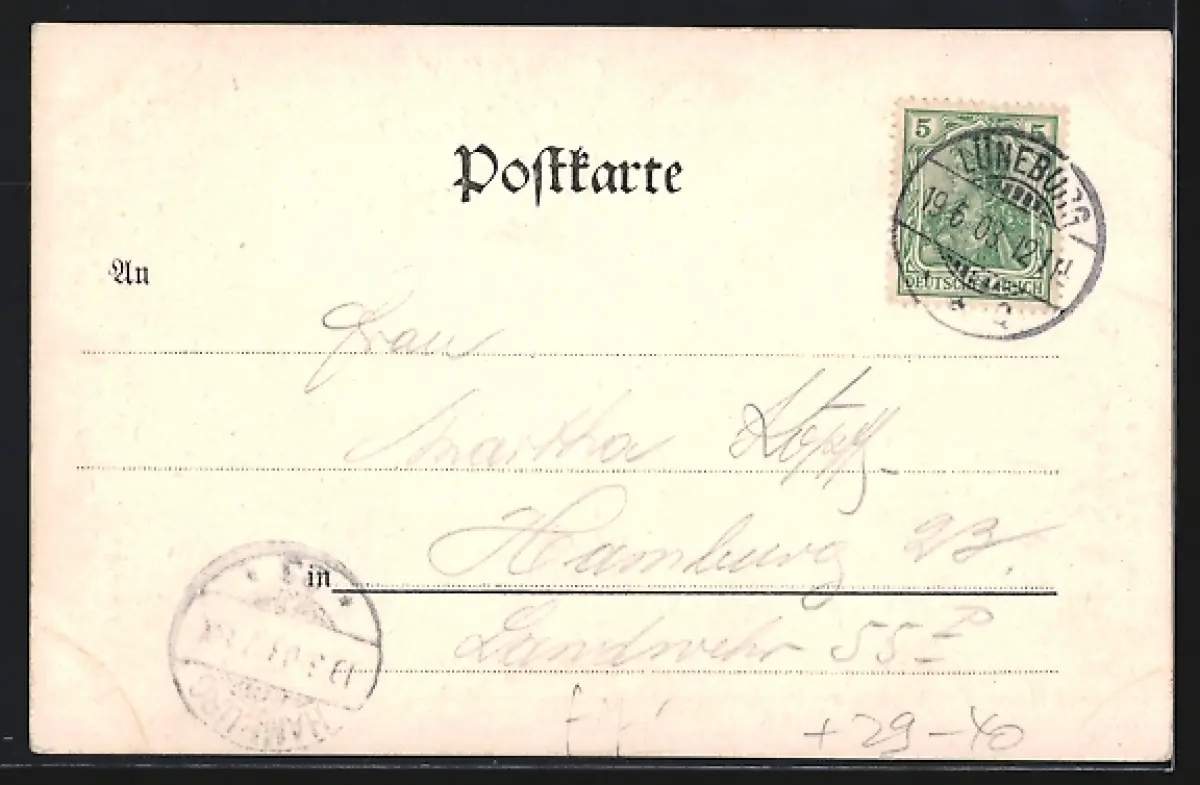 5 5
DEUTSCHES REICH
LÜNEBURG
19.6.03. 12-1N
Postkarte
An
Frau
Martha Töpff
Hamburg 23.
in
Landwehr 55 P
HAMBURG
+29-40